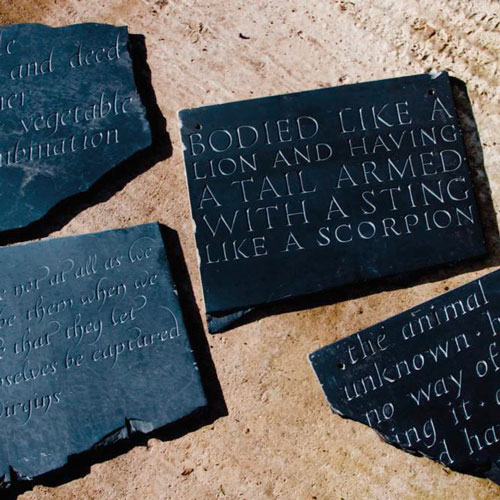 and deed
vegetable
BODIED LIKE A
LION AND HAVING
A TAIL ARMED
WITH A STING
LIKE A SCORPION
not at all as we
them when we
that they let
be captured
the animal
unknown
no way of
it